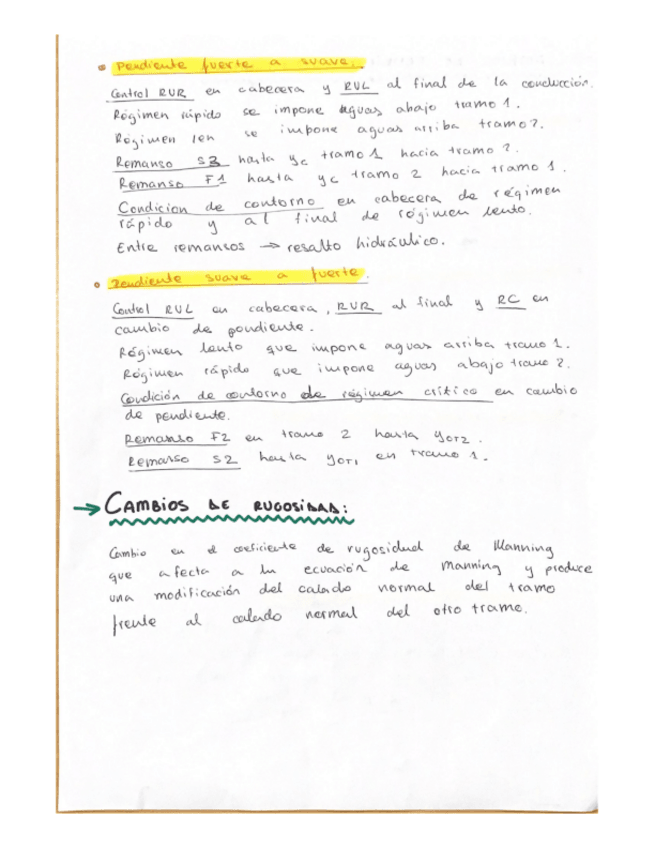 Pendiente fuerte a suave:
Control RUR en cabecera y RUL al final de la conducción.
Régimen rápido se impone aguas abajo tramo 1.
Régimen len se impone aguas arriba tramo 2.
Remanso S3 hasta yc tramo 1 hacia tramo 2.
Remanso F1 hasta yc tramo 2 hacia tramo 1.
Condicion de contorno en cabecera de régimen
rápido y al final de régimen lento.
Entre remansos → resalto hidráulico.
Pendiente suave a fuerte.
Control RUL en cabecera, RUR al final y RC en
cambio de pendiente.
Régimen lento que impone aguas arriba tramo 1.
Régimen rápido que impone aguas abajo tramo 2.
Condición de contorno de régimen crítico en cambio
de pendiente.
Remanso F2 en tramo 2 hasta yor2.
Remanso S2 hasta yor1 en tramo 1.
→ CAMBIOS DE RUGOSIDAD:
Cambio en el coeficiente de rugosidad de Manning
que afecta a la ecuación de Manning y produce
una modificación del calado normal del tramo
frente al calado normal del otro tramo.